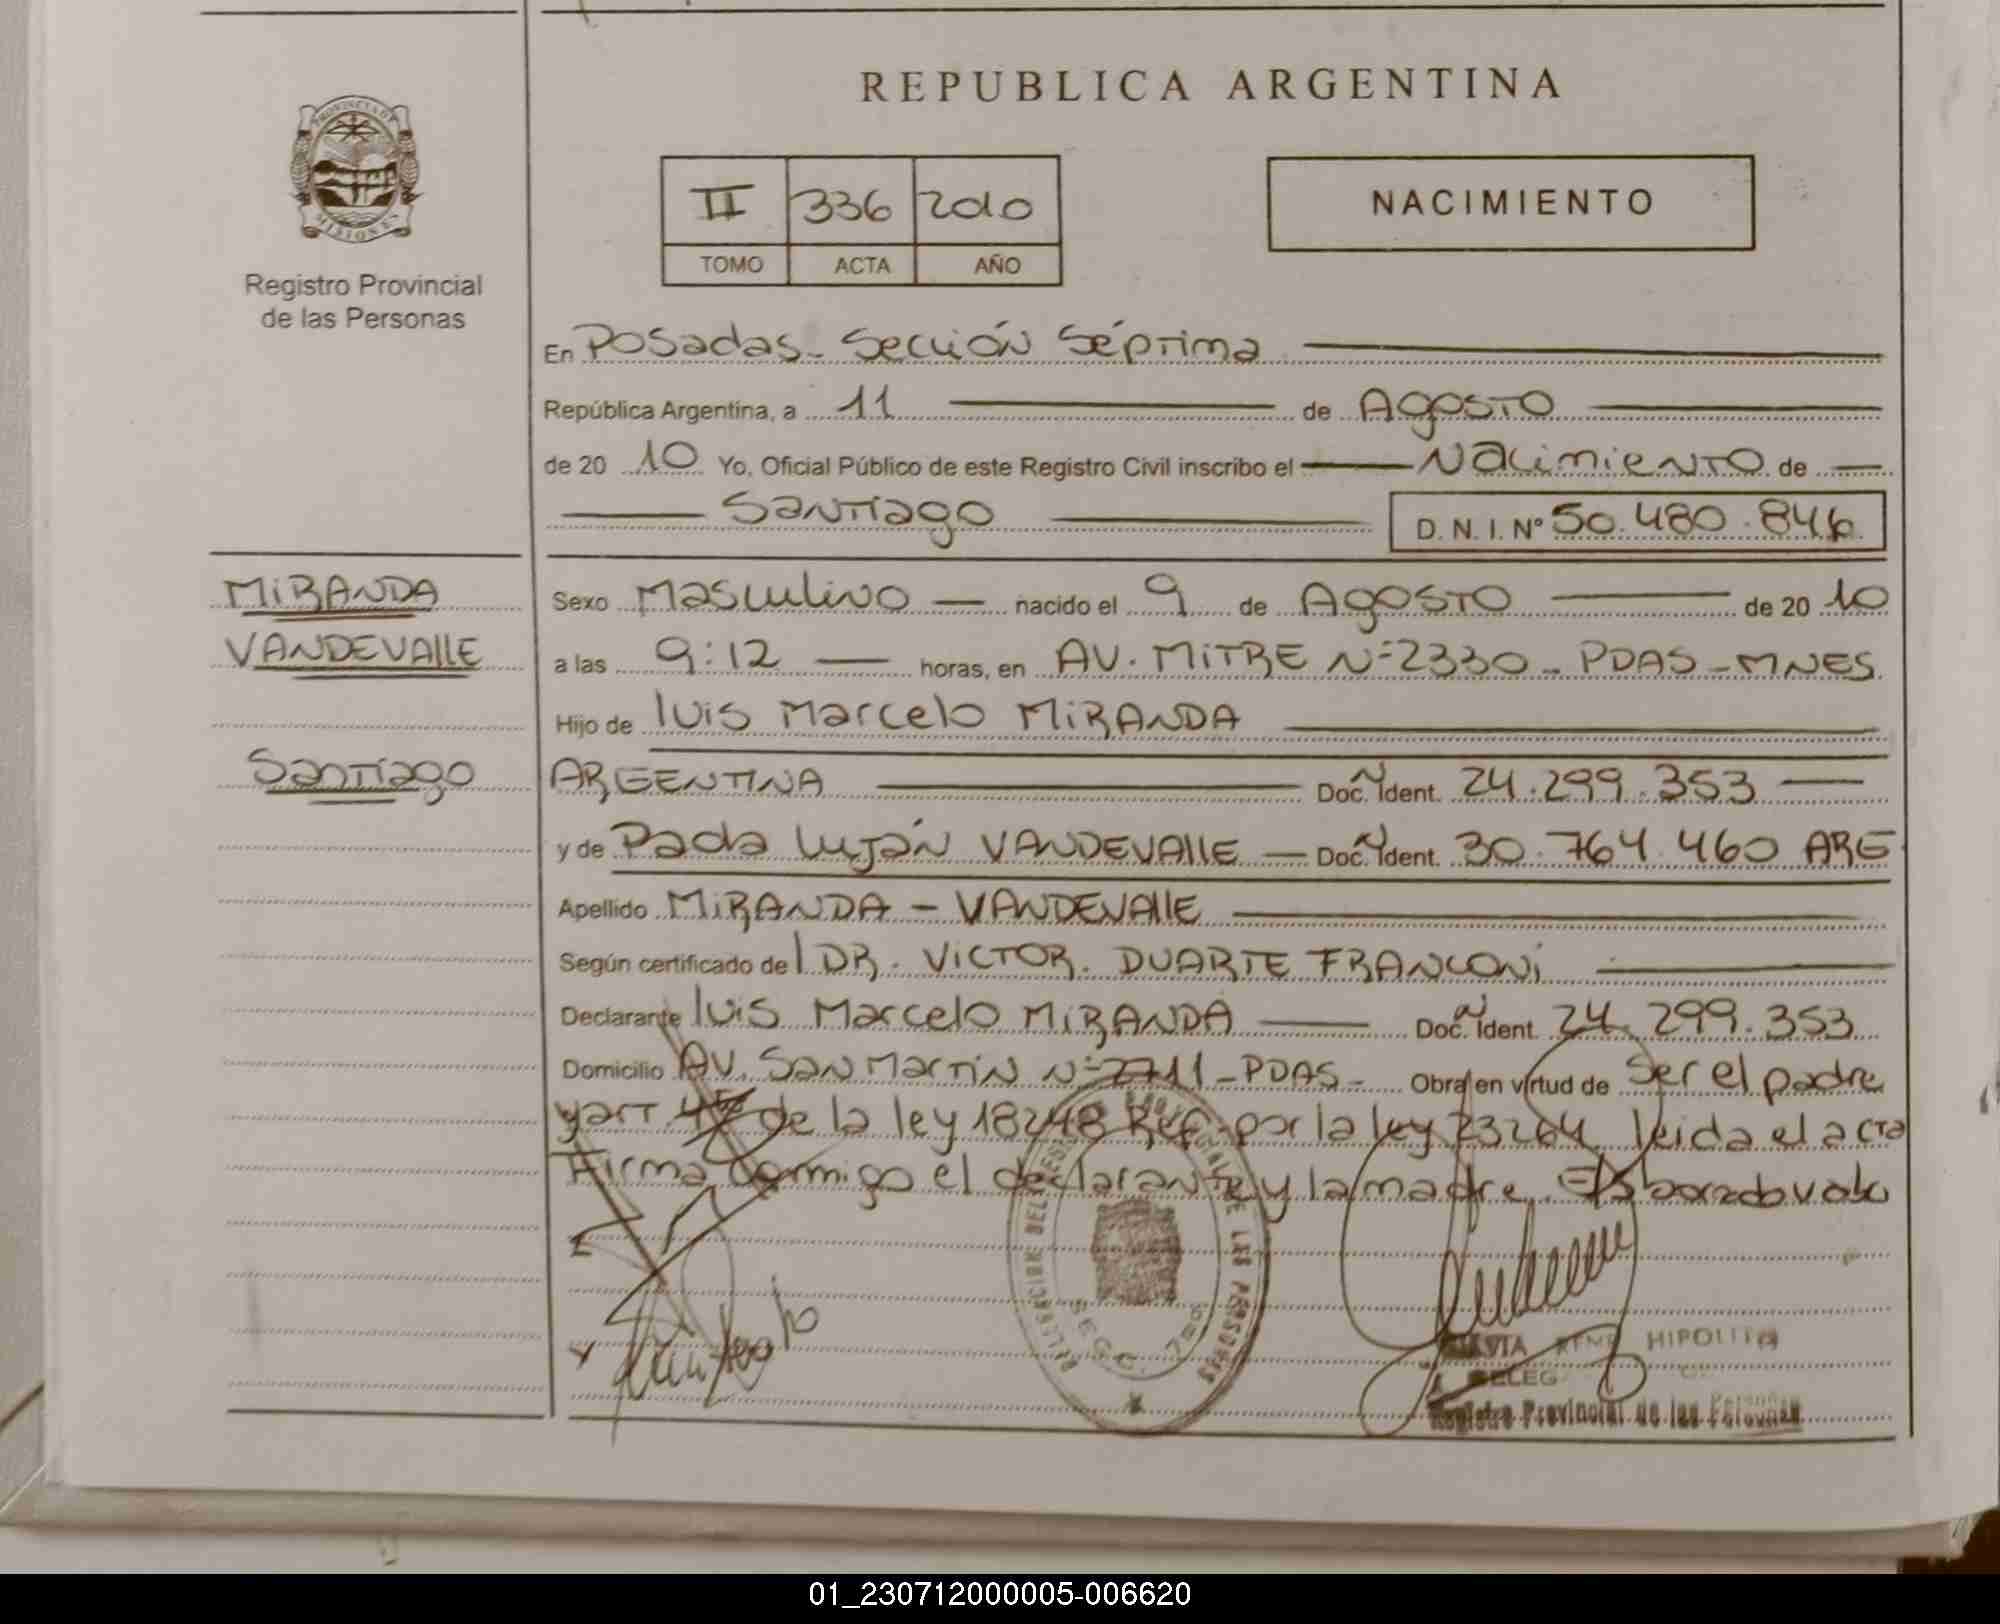 REPUBLICA ARGENTINA
PROVINCIA DE
MISIONES
Registro Provincial
de las Personas
II 336 2010
TOMO ACTA AÑO
NACIMIENTO
En Posadas - Sección Séptima
República Argentina, a 11 de Agosto
de 20 10 Yo, Oficial Público de este Registro Civil inscribo el Nacimiento de
Santiago D. N. I. Nº 50.480.846
MIRANDA
VANDEVALLE
Santiago
Sexo Masculino nacido el 9 de Agosto de 20 10
a las 9:12 horas, en AV. MITRE Nº 2330 - PDAS - MNES
Hijo de Luis Marcelo MIRANDA
ARGENTINA Doc. Ident. 24.299.353
y de Paola Luján VANDEVALLE Doc. Ident. 30.764.460 ARG
Apellido MIRANDA - VANDEVALLE
Según certificado de DR. VICTOR. DUARTE FRANCONI
Declarante Luis Marcelo MIRANDA Doc. Ident. 24.299.353
Domicilio AV. San Martín Nº 2711 - PDAS - Obra en virtud de Ser el padre
y art. de la ley 18248 Ref. por la ley 23264 leida el acta
Firma conmigo el declarante y la madre.
SECC. 7ma
HIPOLITO
Registro Provincial de las Personas
01_230712000005-006620